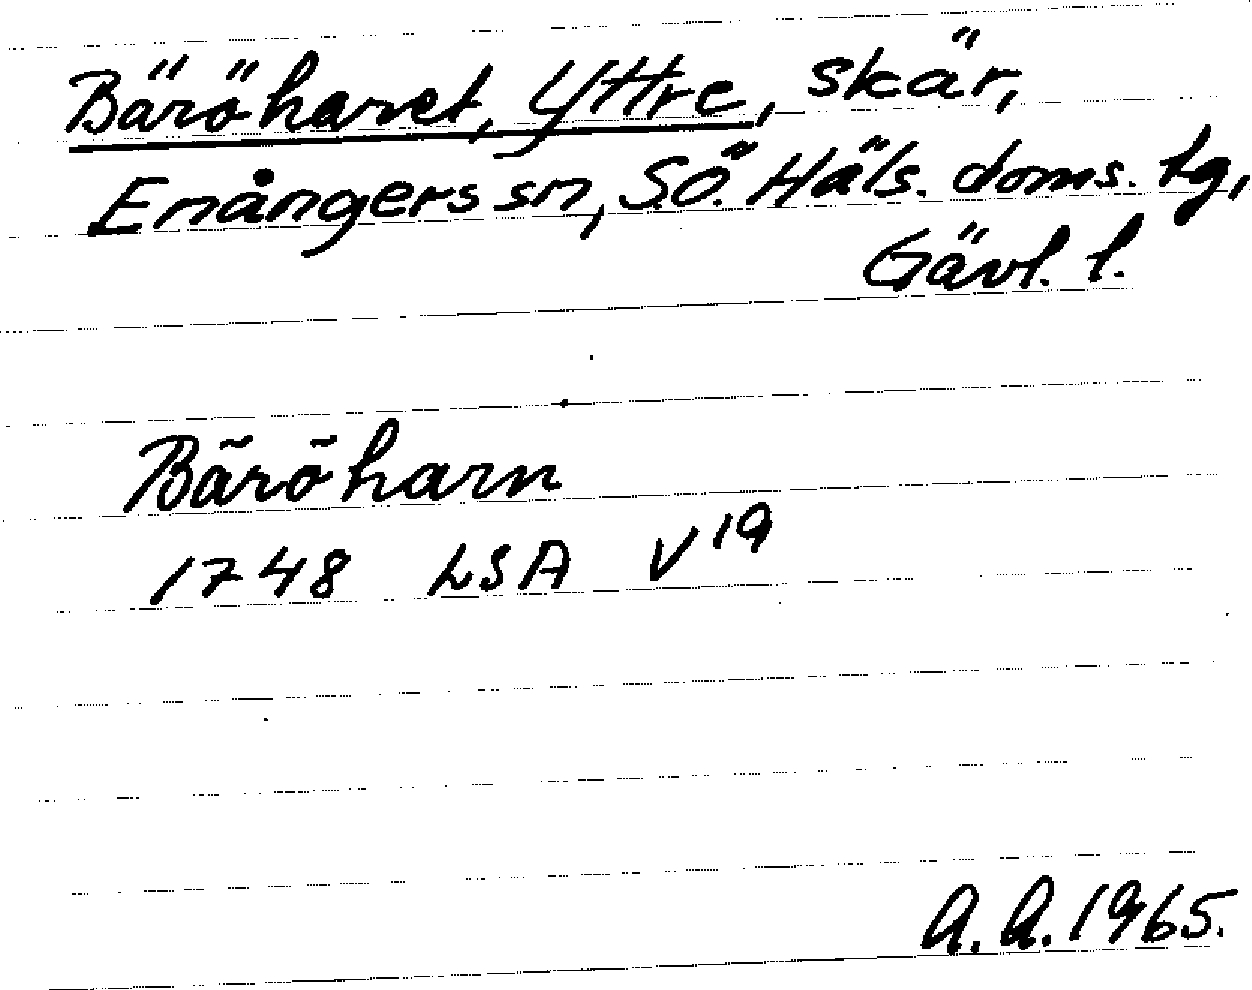 Bäröharet, Yttre, skär,
Enångers sn, Sö. Häls. doms. tg,
Gävl. l.
Bäröharn
1748 LSA V 19
A.A. 1965.